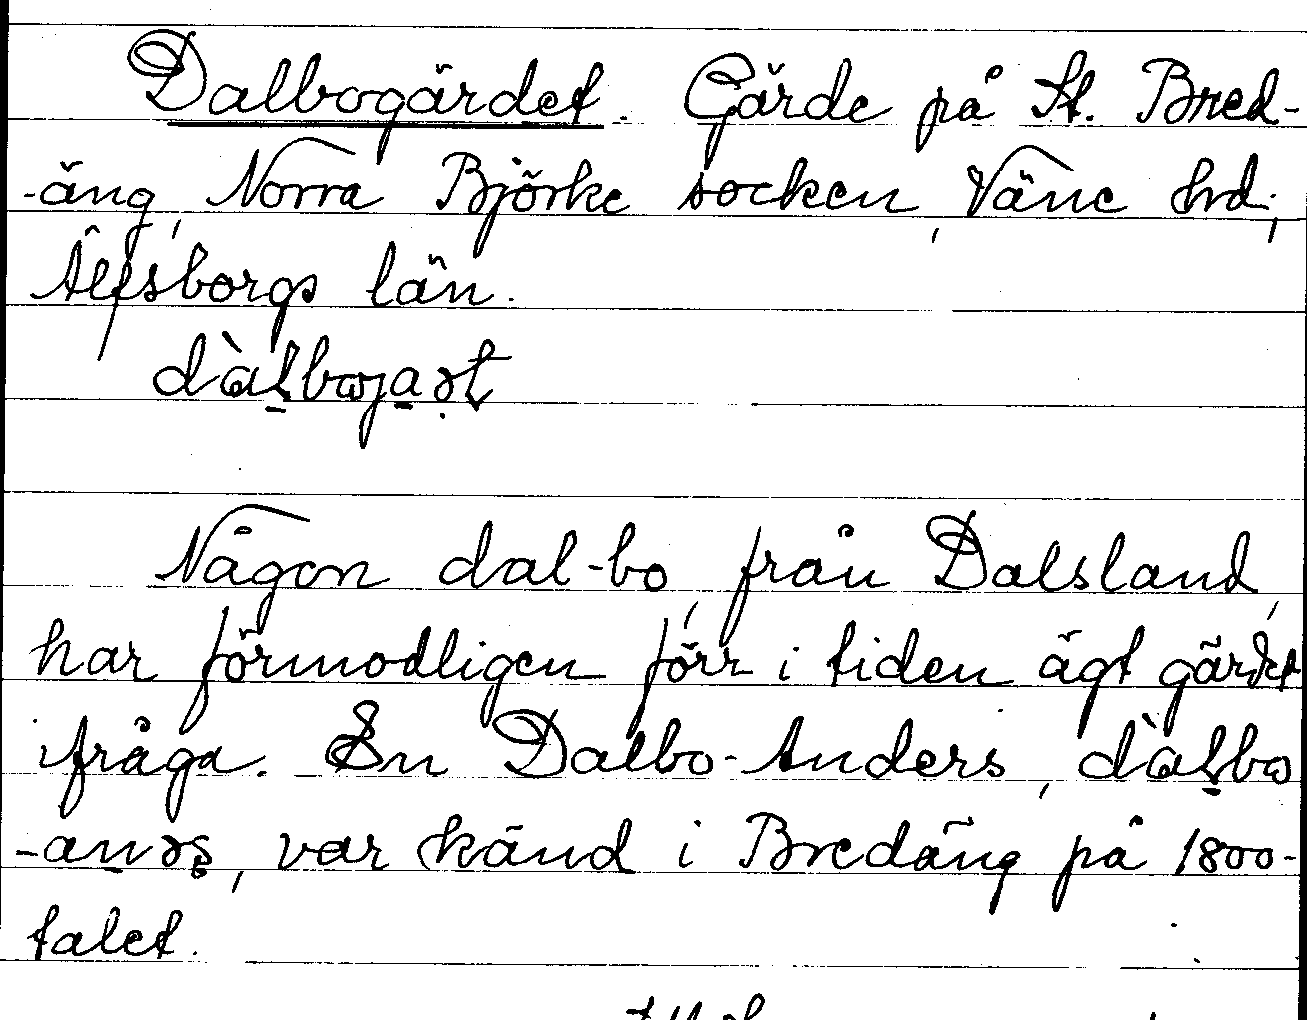 Dalbogärdet. Gärde på St. Bred-
-äng, Norra Björke socken, Väne hrd,
Älfsborgs län.
Någon dal-bo, från Dalsland,
har förmodligen förr i tiden ägt gärdet
ifråga. En Dalbo-Anders,
var känd i Bredäng på 1800-
talet.